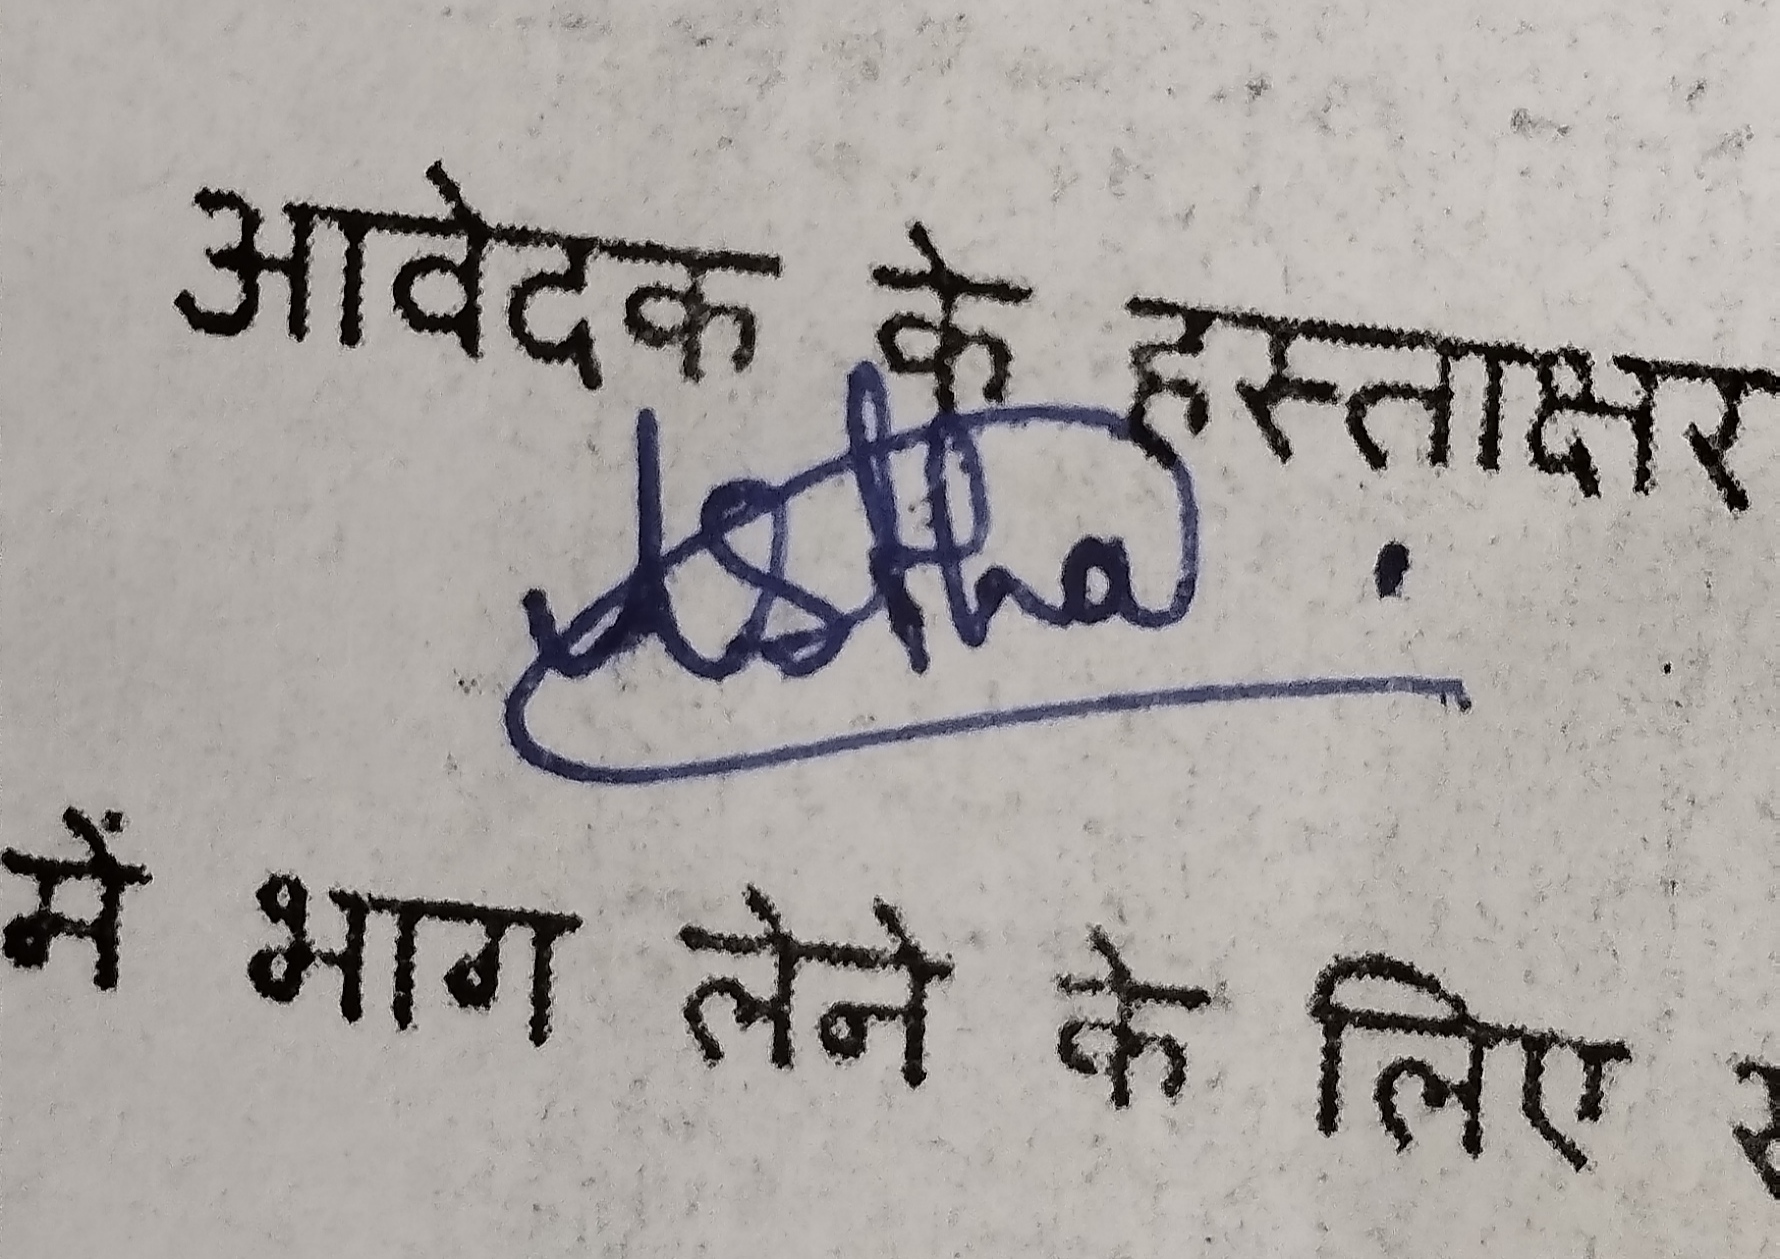 आवेदक के हस्ताक्षर
Astha
में भाग लेने के लिए